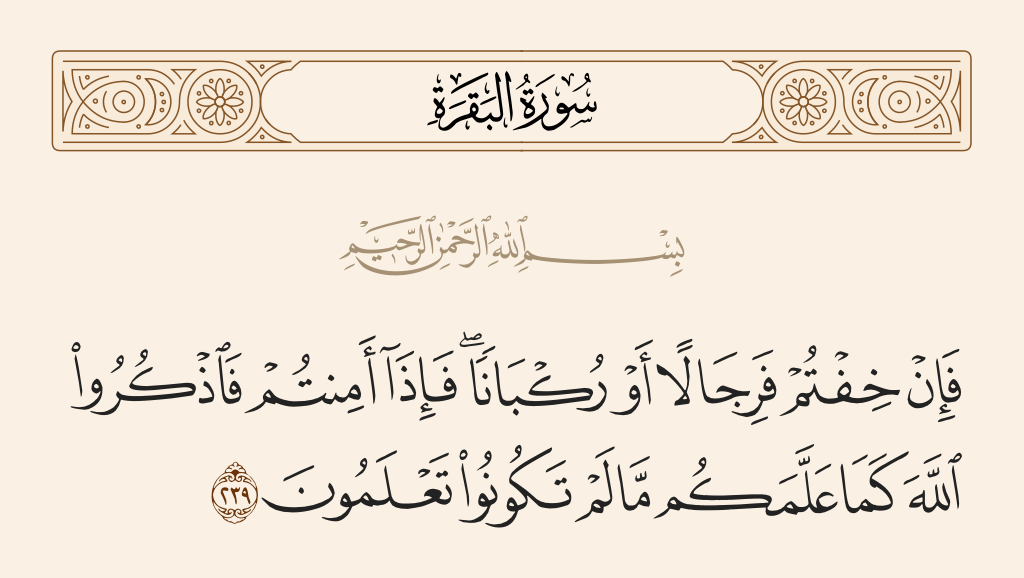 سُورَةُ البَقَرَةِ
بِسْمِ ٱللَّهِ ٱلرَّحْمَٰنِ ٱلرَّحِيمِ
فَإِنْ خِفْتُمْ فَرِجَالًا أَوْ رُكْبَانًا ۖ فَإِذَآ أَمِنتُمْ فَٱذْكُرُوا۟
ٱللَّهَ كَمَا عَلَّمَكُم مَّا لَمْ تَكُونُوا۟ تَعْلَمُونَ ٢٣٩